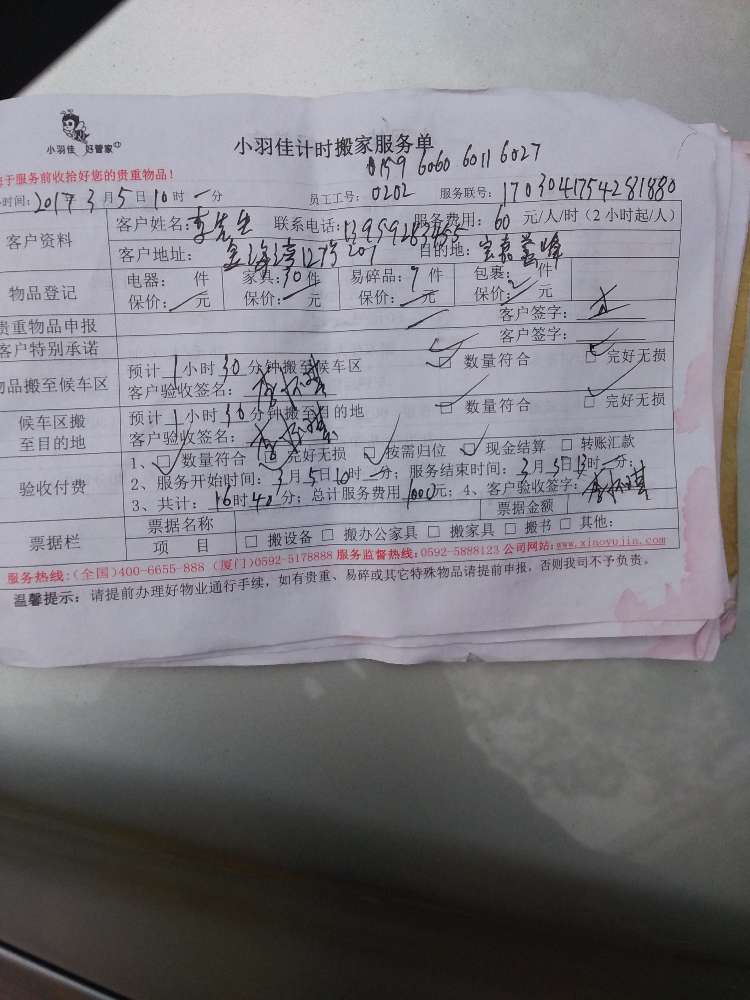 小羽佳 好管家
小羽佳计时搬家服务单
0159 6060 6011 6027
于服务前收拾好您的贵重物品！
时间：2017年3月5日10时一分 员工工号：0202 服务联号：17030417542 81880
客户资料
客户姓名：李先生 联系电话： 服务费用：60元/人/时（2小时起/人）
客户地址： 127号201 目的地：宝嘉誉峰
物品登记
电器： 件 家具：30件 易碎品：7件 包裹：2件
保价： 元 保价： 元 保价： 元 保价： 元
贵重物品申报 客户签字：
客户特别承诺 客户签字：
物品搬至候车区
预计1小时30分钟搬至候车区 □ 数量符合 □ 完好无损
客户验收签名：
候车区搬至目的地
预计1小时30分钟搬至目的地 □ 数量符合 □ 完好无损
客户验收签名：
验收付费
1、□ 数量符合 □ 完好无损 □ 按需归位 □ 现金结算 □ 转账汇款
2、服务开始时间：3月5日10时一分；服务结束时间：3月5日13时一分；
3、共计：16时40分；总计服务费用1000元；4、客户验收签字：
票据栏
票据名称 票据金额
项 目 □ 搬设备 □ 搬办公家具 □ 搬家具 □ 搬书 □ 其他：
服务热线：（全国）400-6655-888（厦门）0592-5178888 服务监督热线：0592-5888123 公司网站：www.xiaoyujia.com
温馨提示：请提前办理好物业通行手续，如有贵重、易碎或其它特殊物品请提前申报，否则我司不予负责。